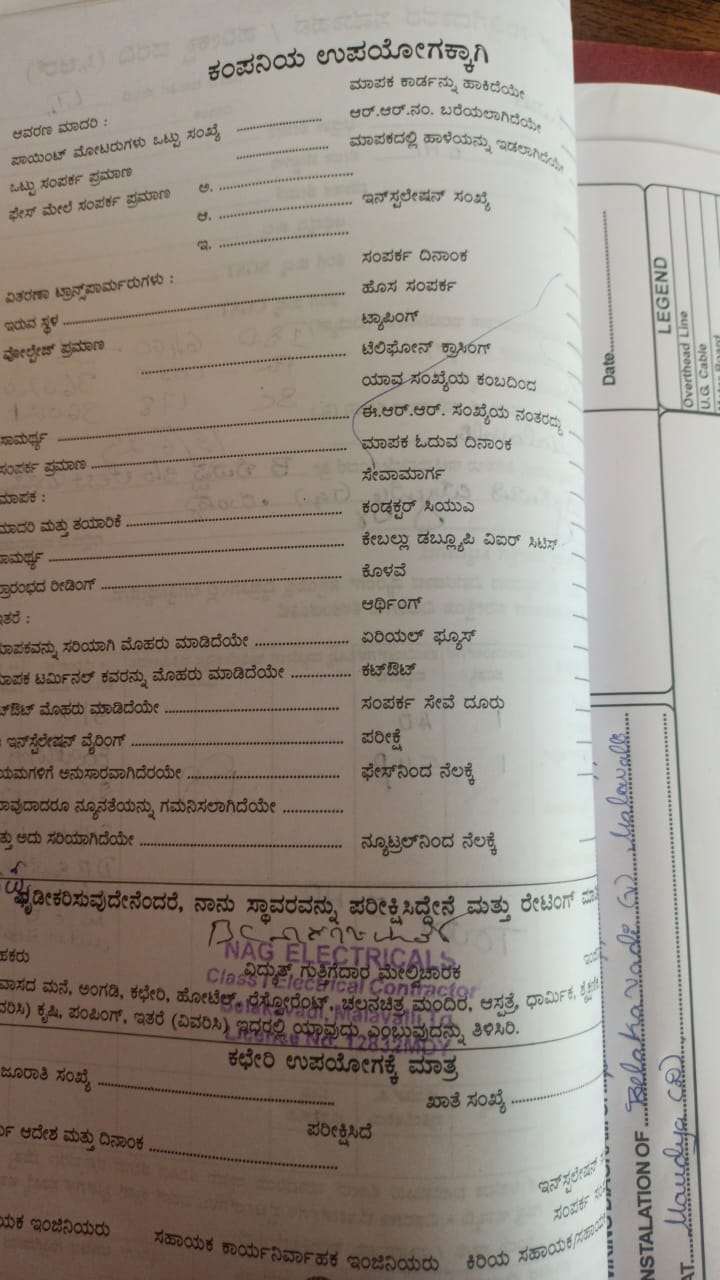 ಕಂಪನಿಯ ಉಪಯೋಗಕ್ಕಾಗಿ
ಮಾಪಕ ಕಾರ್ಡನ್ನು ಹಾಕಿದೆಯೇ
ಆವರಣ ಮಾದರಿ :
ಆರ್.ಆರ್.ನಂ. ಬರೆಯಲಾಗಿದೆಯೇ
ಪಾಯಿಂಟ್ ಮೋಟರುಗಳು ಒಟ್ಟು ಸಂಖ್ಯೆ ....................
ಮಾಪಕದಲ್ಲಿ ಹಾಳೆಯನ್ನು ಇಡಲಾಗಿದೆಯೇ
ಒಟ್ಟು ಸಂಪರ್ಕ ಪ್ರಮಾಣ ....................
ಫೇಸ್ ಮೇಲೆ ಸಂಪರ್ಕ ಪ್ರಮಾಣ ಅ. ....................
ಆ. .................... ಇನ್‌ಸ್ಪಲೇಷನ್ ಸಂಖ್ಯೆ
ಇ. ....................
ಸಂಪರ್ಕ ದಿನಾಂಕ
ವಿತರಣಾ ಟ್ರಾನ್ಸ್‌ಪಾರ್ಮರುಗಳು :
ಹೊಸ ಸಂಪರ್ಕ
ಇರುವ ಸ್ಥಳ ....................
ಟ್ಯಾಪಿಂಗ್
ವೋಲ್ಟೇಜ್ ಪ್ರಮಾಣ ....................
ಟೆಲಿಫೋನ್ ಕ್ರಾಸಿಂಗ್
ಯಾವ ಸಂಖ್ಯೆಯ ಕಂಬದಿಂದ
ಈ.ಆರ್.ಆರ್. ಸಂಖ್ಯೆಯ ನಂತರದ್ದು
ಸಾಮರ್ಥ್ಯ ....................
ಮಾಪಕ ಓದುವ ದಿನಾಂಕ
ಸಂಪರ್ಕ ಪ್ರಮಾಣ ....................
ಸೇವಾಮಾರ್ಗ
ಮಾಪಕ :
ಕಂಡಕ್ಟರ್ ಸಿಯುಎ
ಮಾದರಿ ಮತ್ತು ತಯಾರಿಕೆ ....................
ಕೇಬಲ್ಲು ಡಬ್ಲ್ಯೂಪಿ ವಿಐರ್ ಸಿಟಿಸ್
ಾಮರ್ಥ್ಯ ....................
ಕೊಳವೆ
ಪ್ರಾರಂಭದ ರೀಡಿಂಗ್ ....................
ಆರ್ಥಿಂಗ್
ಇತರೆ :
ಏರಿಯಲ್ ಫ್ಯೂಸ್
ಮಾಪಕವನ್ನು ಸರಿಯಾಗಿ ಮೊಹರು ಮಾಡಿದೆಯೇ ....................
ಕಟ್‌ಔಟ್
ಮಾಪಕ ಟರ್ಮಿನಲ್ ಕವರನ್ನು ಮೊಹರು ಮಾಡಿದೆಯೇ ....................
ಸಂಪರ್ಕ ಸೇವೆ ದೂರು
ಟ್‌ಔಟ್ ಮೊಹರು ಮಾಡಿದೆಯೇ ....................
ಪರೀಕ್ಷೆ
ಇನ್‌ಸ್ಟೆಲೇಷನ್ ವೈರಿಂಗ್ ....................
ಫೇಸ್‌ನಿಂದ ನೆಲಕ್ಕೆ
ಯಮಗಳಿಗೆ ಅನುಸಾರವಾಗಿದೆರಯೇ ....................
ಾವುದಾದರೂ ನ್ಯೂನತೆಯನ್ನು ಗಮನಿಸಲಾಗಿದೆಯೇ ....................
ತ್ತು ಅದು ಸರಿಯಾಗಿದೆಯೇ .................... ನ್ಯೂಟ್ರಲ್‌ನಿಂದ ನೆಲಕ್ಕೆ
ಧೃಡೀಕರಿಸುವುದೇನೆಂದರೆ, ನಾನು ಸ್ಥಾವರವನ್ನು ಪರೀಕ್ಷಿಸಿದ್ದೇನೆ ಮತ್ತು ರೇಟಿಂಗ್
NAG ELECTRICALS
ವಿದ್ಯುತ್ ಗುತ್ತಿಗೆದಾರ ಮೇಲ್ವಿಚಾರಕ
Class I Electrical Contractor
ವಾಸದ ಮನೆ, ಅಂಗಡಿ, ಕಛೇರಿ, ಹೋಟೆಲ್, ರೆಸ್ಟೋರೆಂಟ್, ಚಲನಚಿತ್ರ ಮಂದಿರ, ಆಸ್ಪತ್ರೆ, ಧಾರ್ಮಿಕ,
Belakavadi, Malavalli Tq.
ವರಿಸಿ) ಕೃಷಿ, ಪಂಪಿಂಗ್, ಇತರೆ (ವಿವರಿಸಿ) ಇದರಲ್ಲಿ ಯಾವುದು ಎಂಬುವುದನ್ನು ತಿಳಿಸಿರಿ.
Licence No. 12832MDY
ಕಛೇರಿ ಉಪಯೋಗಕ್ಕೆ ಮಾತ್ರ
ಜೂರಾತಿ ಸಂಖ್ಯೆ .................... ಖಾತೆ ಸಂಖ್ಯೆ ....................
ಪರೀಕ್ಷಿಸಿದೆ
ರ್ಯ ಆದೇಶ ಮತ್ತು ದಿನಾಂಕ ....................
ಇನ್‌ಸ್ಪಲೇಷನ್
ಸಂಪರ್ಕ
ಯಕ ಇಂಜಿನಿಯರು ಸಹಾಯಕ ಕಾರ್ಯನಿರ್ವಾಹಕ ಇಂಜಿನಿಯರು ಕಿರಿಯ ಸಹಾಯಕ/ಸಹಾಯಕ
Date....................
LEGEND
Overthead Line
U.G. Cable
NSTALATION OF Belakavadi (V) Malavalli
AT Mandya (D)